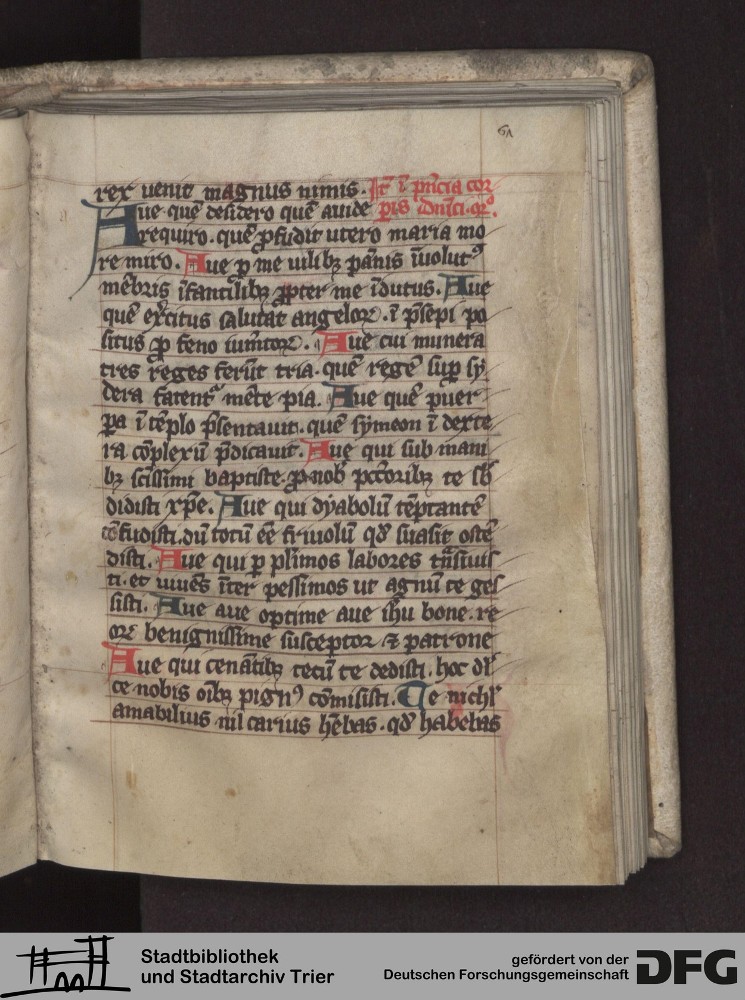 61
rex uenit magnus nimis. It̄ ī p̄ncia cor
Aue quē desidero quē auide p̄is dn̄ici. or̄o.
requiro. quē ꝓfudit utero maria mo
re miro. Aue ꝑ me uilibꝫ pānis īuolutꝰ
mēbris īfantilibꝫ ꝓpter me īdutus. Aue
quē ex̄citus salutat angeloꝝ. ī p̄sepi po
situs ꝓ feno iumētoꝝ. Aue cui munera
tres reges ferūt tria. quē regē suꝑ sy
dera fatentᷣ mēte pia. Aue quē puer
ꝑa ī tēplo p̄sentauit. quē symeon ī dexte
ra cōplexū p̄dicauit. Aue qui sub mani
bꝫ sc̄issimi baptiste. ꝓ nob̄ pcc̄oribꝫ te sb̄
didisti xp̄e. Aue qui dyabolū tēptantē
cōfudisti. dū totū eē friuolū qd̄ suasit ostē
disti. Aue qui ꝑ pl̄imos labores trāsiuis
ti. et uiuēs īter pessimos ut agnū te ges
sisti. Aue aue optime aue ih̄u bone. re
oꝝ benignissime susceptor ⁊ patrone
Aue qui cenātibꝫ tecū te dedisti. hoc dl̄
ce nobis oībꝫ pignꝰ cōmisisti. Te nichl̄
amabilius nil carius hēbas. qd̄ habebas
Stadtbibliothek
und Stadtarchiv Trier
gefördert von der
Deutschen Forschungsgemeinschaft
DFG